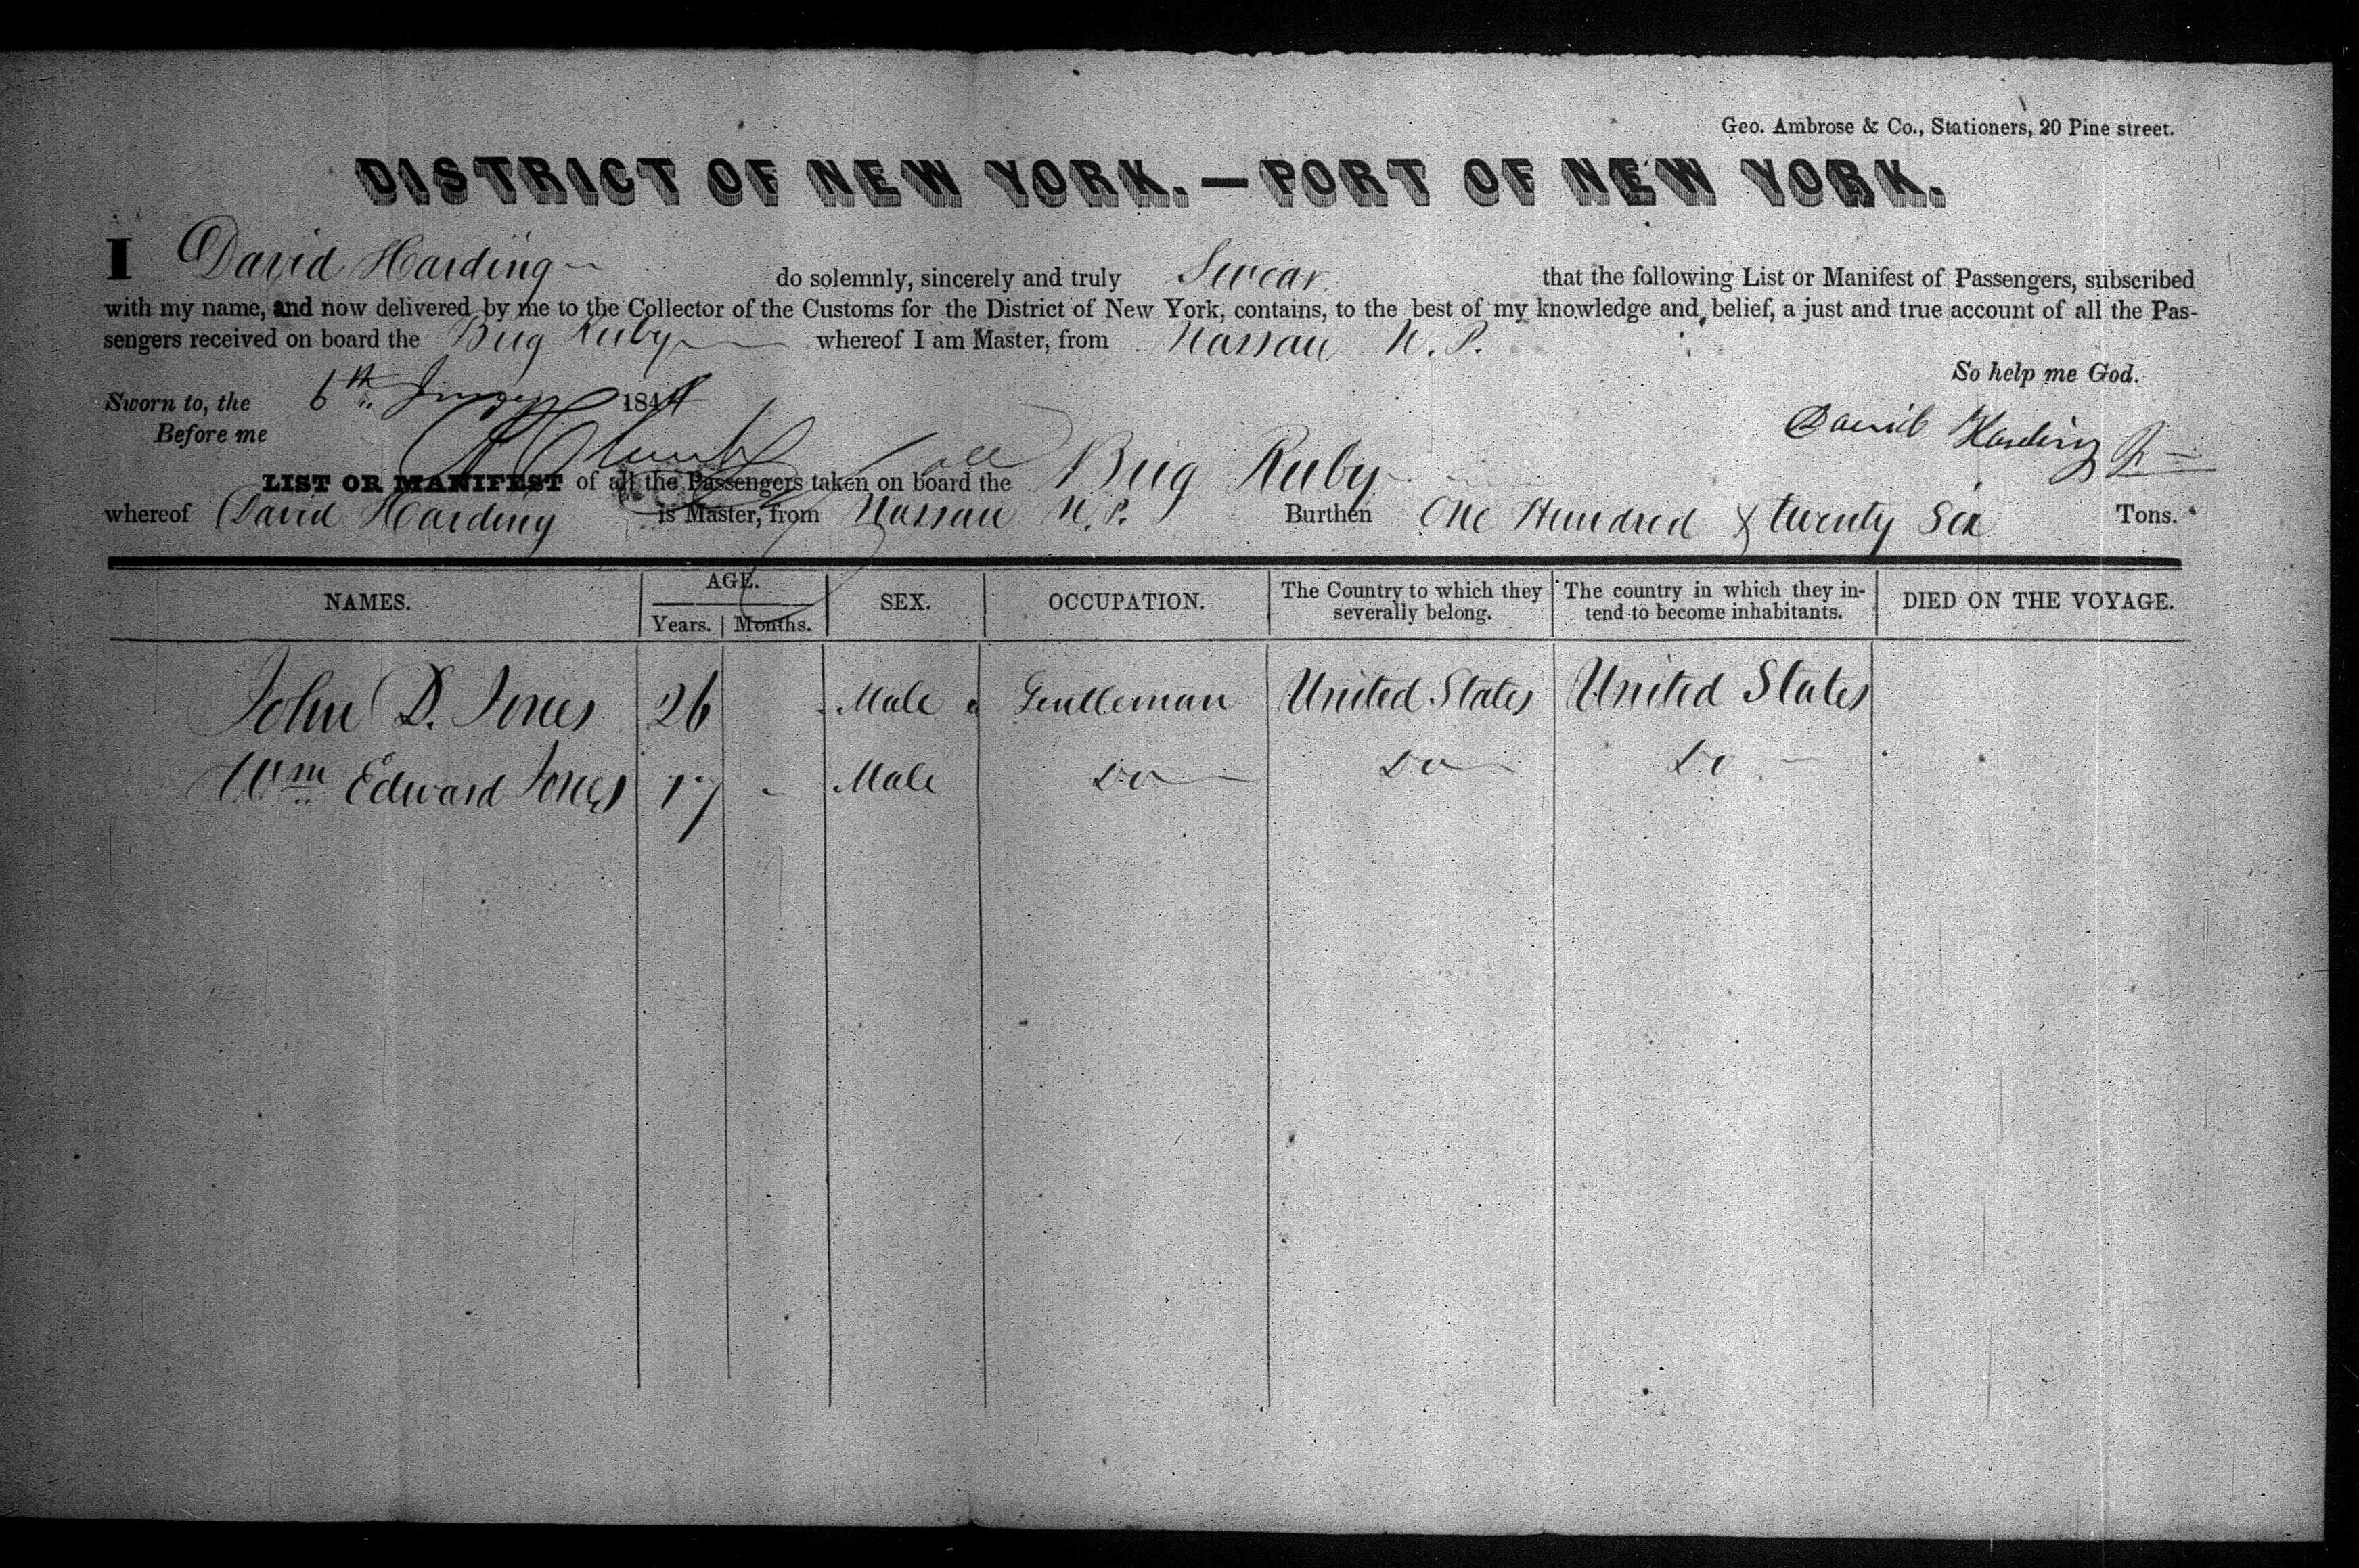 Geo. Ambrose & Co., Stationers, 20 Pine street.
DISTRICT OF NEW YORK.—PORT OF NEW YORK.
I David Harding do solemnly, sincerely and truly Swear that the following List or Manifest of Passengers, subscribed
with my name, and now delivered by me to the Collector of the Customs for the District of New York, contains, to the best of my knowledge and belief, a just and true account of all the Pas-
sengers received on board the Brig Ruby whereof I am Master, from Nassau N. P.
So help me God.
Sworn to, the 6th 184
Before me
David Harding Jr
LIST OR MANIFEST of all the Passengers taken on board the Brig Ruby
whereof David Harding is Master, from Nassau N. P. Burthen One Hundred & twenty Six Tons.
NAMES. AGE. SEX. OCCUPATION. The Country to which they severally belong. The country in which they in-tend to become inhabitants. DIED ON THE VOYAGE.
Years. Months.
John D. Jones 26 Male Gentleman United States United States
Wm Edward Jones 17 - Male Do Do Do